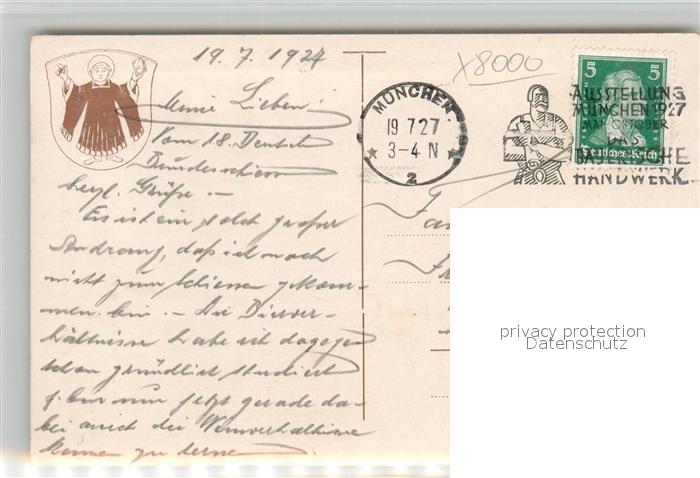 19. 7. 1927
Meine Lieben!
Vom 18. Deutsch
Bundesschiessen
herzl. Grüße. —
Es ist ein solch großer
Andrang, daß ich noch
nicht zum Schiessen gekom-
men bin. — Die Bierver-
hältnisse habe ich dagegen
schon gründlich studiert
u. bin nun jetzt gerade da-
bei auch die Weinverhältnisse
kennen zu lernen
x8000
MÜNCHEN.
19 7.27
3-4 N
2
AUSSTELLUNG
MÜNCHEN 1927
MAI OKTOBER
DAS
BAYERISCHE
HANDWERK.
5 5
Deutsches Reich
privacy protection
Datenschutz